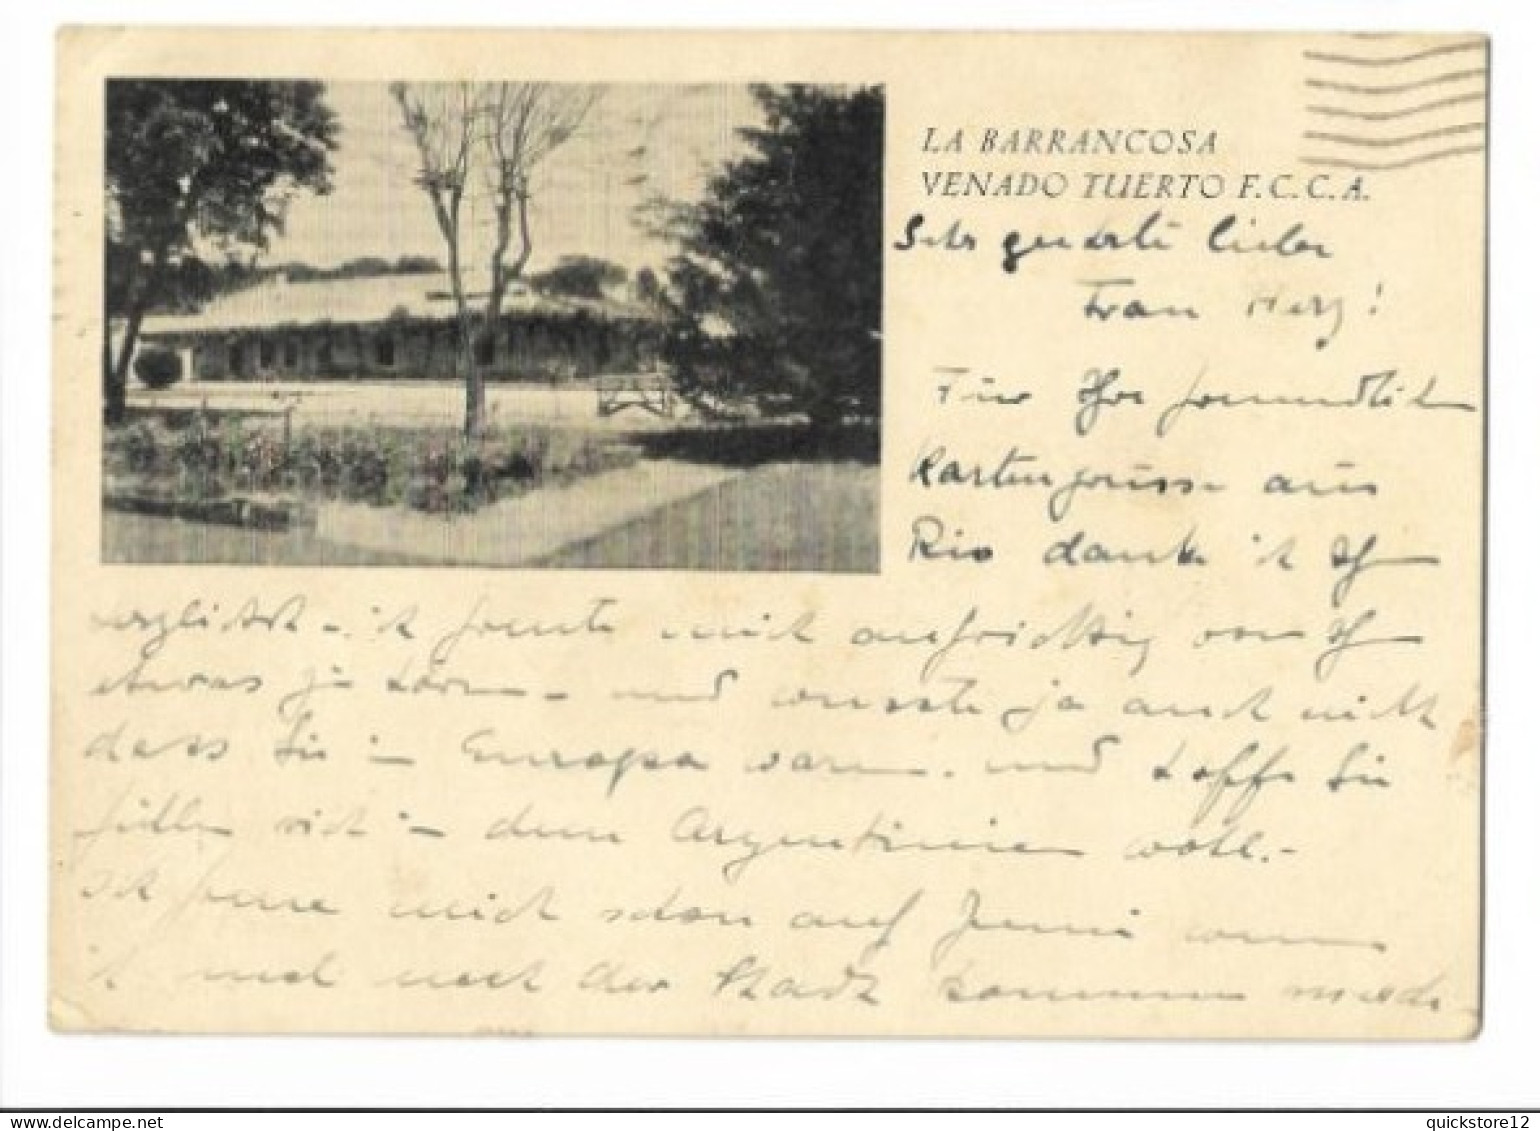 LA BARRANCOSA
VENADO TUERTO F.C.C.A.
Sehr geehrte liebe
Frau Herz!
Für Ihre freundlichen
Kartengrüsse aus
Rio danke ich Ihnen
herzlichst - ich freute mich aufrichtig von Ihnen
etwas zu hören - und wusste ja auch nicht
dass Sie in Europa waren. und hoffe Sie
fühlen sich in dem Argentinien wohl.-
Ich freue mich schon auf Juni wenn
ich mal nach der Stadt kommen werde
www.delcampe.net
quickstore12